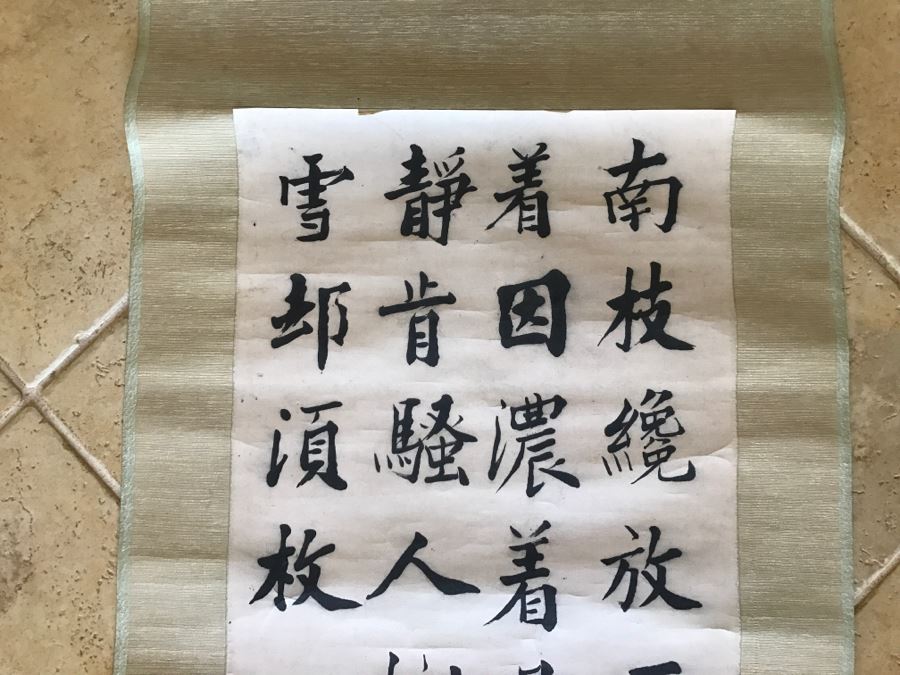 南枝纔放
着因濃着
靜肯騷人
雪却須枚